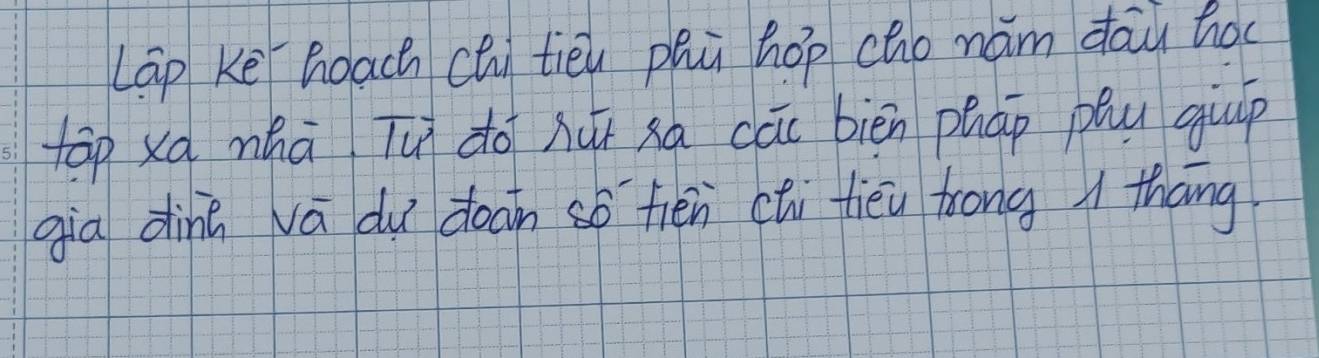 Lập kế hoạch chi tiêu phù hợp cho năm đầu học
tập xa nhà. Từ đó rút ra các biện pháp phụ giúp
gia đình và dự đoán số tiền chi tiêu trong 1 tháng.